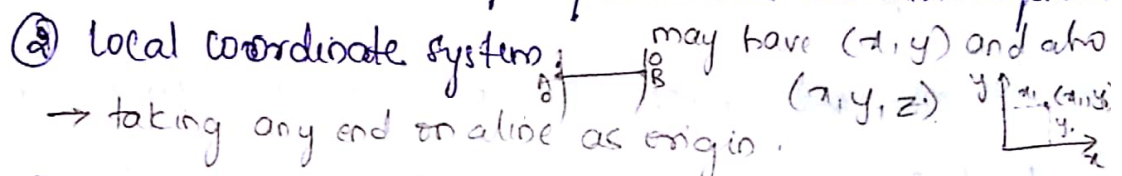 ② Local coordinate system: may have (x, y) and also
A B
0 0
(x, y, z)
→ taking any end on a line as origin.
y
x